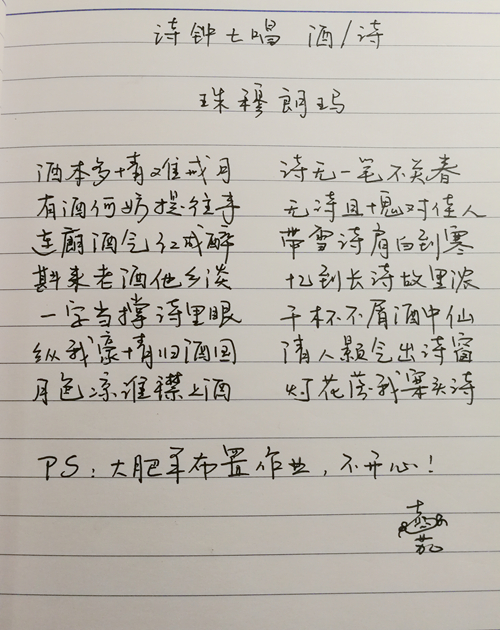 诗钟七唱 酒/诗
珠穆朗玛
酒本多情难戒月 诗无一笔不关春
有酒何妨提往事 无诗且愧对佳人
连廊酒气红成醉 带雪诗肩白到寒
斟来老酒他乡淡 忆到长诗故里浓
一字当撑诗里眼 千杯不屑酒中仙
纵我豪情归酒国 清人颢气出诗窗
月色凉谁襟上酒 灯花落我案头诗
PS：大肥羊布置作业，不开心！